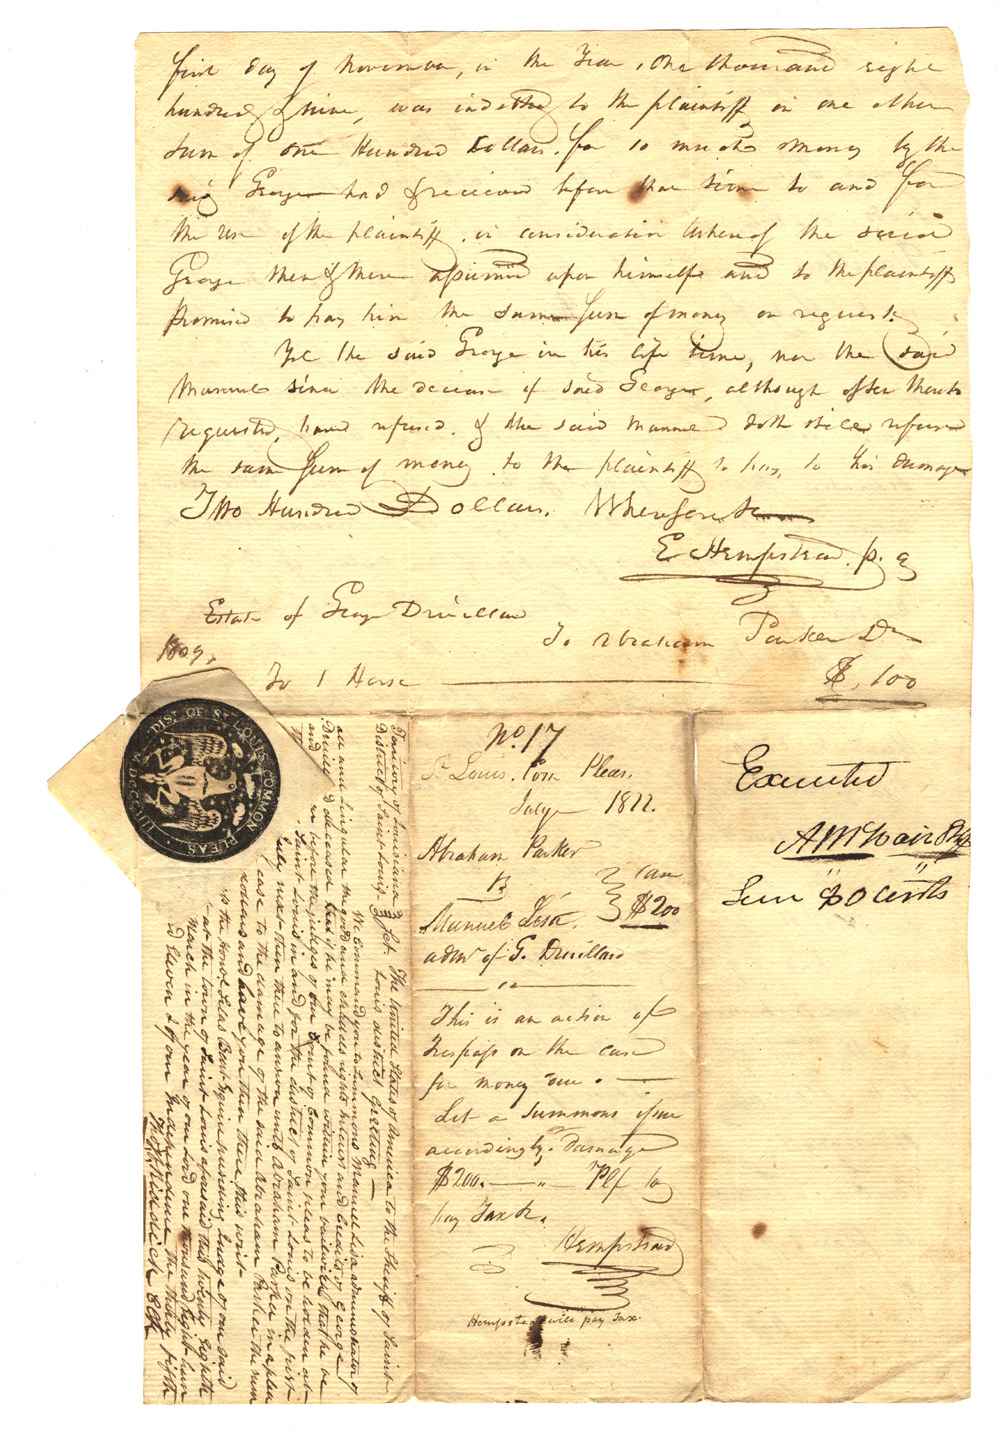 first day of November, in the Year, One thousand eight
hundred & nine, was indebted to the plaintiff in one other
sum of one Hundred Dollars. for so much money by the
said George had & received before that time to and for
the use of the plaintiff. in consideration whereof the said
George then & there assumed upon himself and to the plaintiff
Promised to pay him the same Sum of money on request.
Yet the said George in his life time, nor the said
Manuel since the decease of said George, although often thereto
requested, have refused. & the said Manuel doth still refuse
the same Sum of money to the plaintiff to pay, to his damage
Two Hundred Dollars. Wherefore he
E Hempstead. p. q
Estate of George Druillard
To Abraham Parker Dr
1809.
To 1 Horse $,100
DIST. OF ST. LOUIS COMMON PLEAS
Territory of Louisiana } Sct.
District of Saint Louis }
The United States of America to the Sheriff of Saint
Louis district Greeting—
We Command you to Summons Manuel Lisa administrator of
all and singular the good and chattels rights interests and Credits of George
Druillard deceased that if he may be found within your bailiwick that he be
and before the Judges of our Court of Common pleas to be holden at
Saint Louis in and for the district of Saint Louis on the first
July next then there to answer unto Abraham Parker in a plea
case to the damage of the said Abraham Parker the sum
dollars and have you then there this writ—
ss the Honbl. Silas Bent Esquire presiding Judge of our said
at the town of Saint Louis aforesaid this twenty Eighth
March in the year of our Lord one thousand Eight hun
d Eleven & of our Independence the thirty fifth
Th F Riddick Clk
No. 17
St Louis. Com Pleas.
July 1811.
Abraham Parker
vs } Case
Manuel Lisa. } $200
admr of G. Druillard
This is an action of
Trespass on the case
for money due. —
Let a summons issue
accordingly. Damage
$200. — " — Plf to
pay Tax &.
Hempstead
Hempstead will pay Tax.
Executed
A McNair Shff
Serv $0 cents